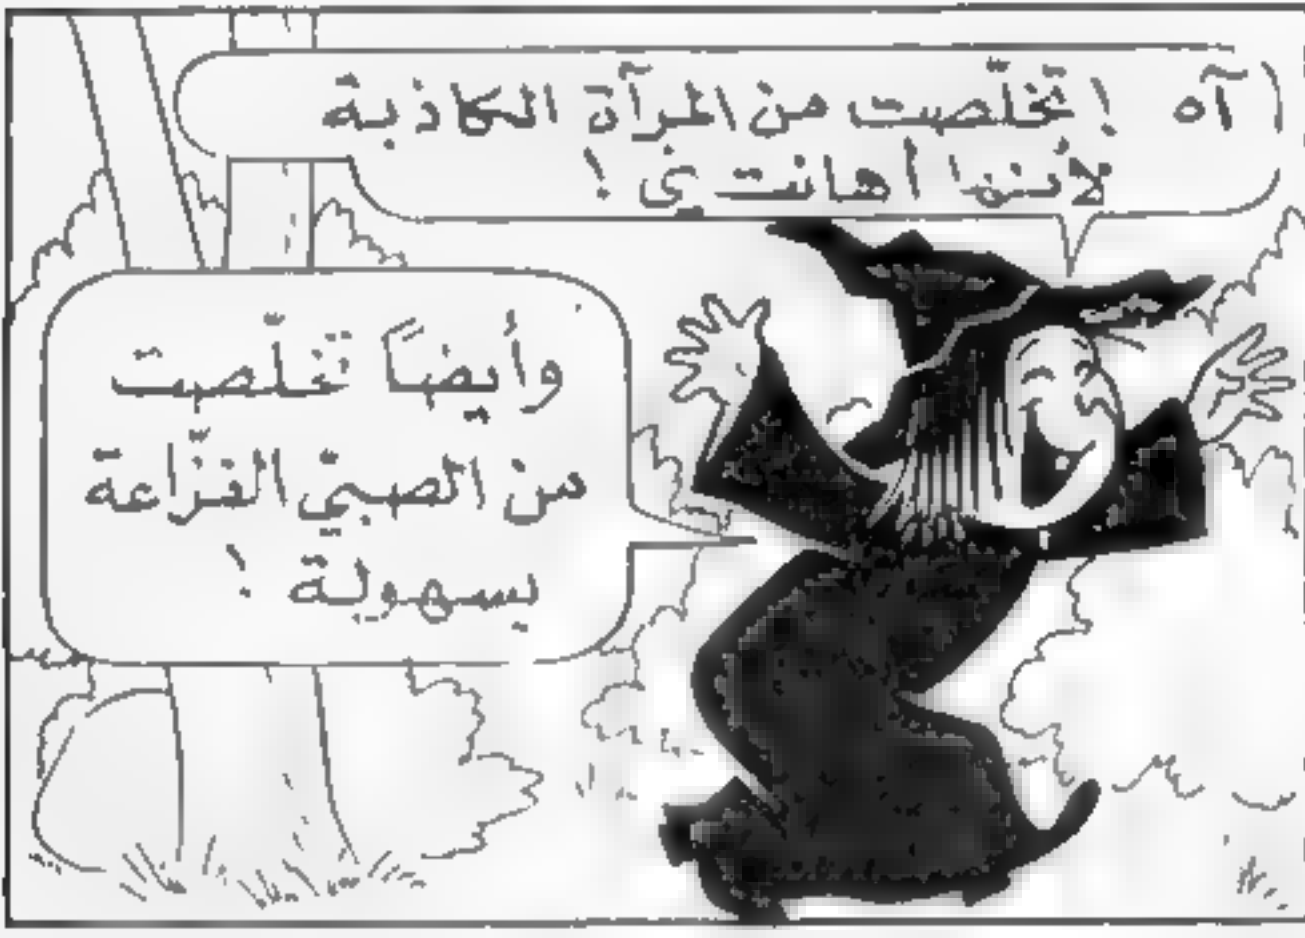 آه ! تخلّصت من المرآة الكاذبة
لأننها أهانت ني !
وأيضاً تخلّصت
من الصبيّ الفزّاعة
بسهولة !